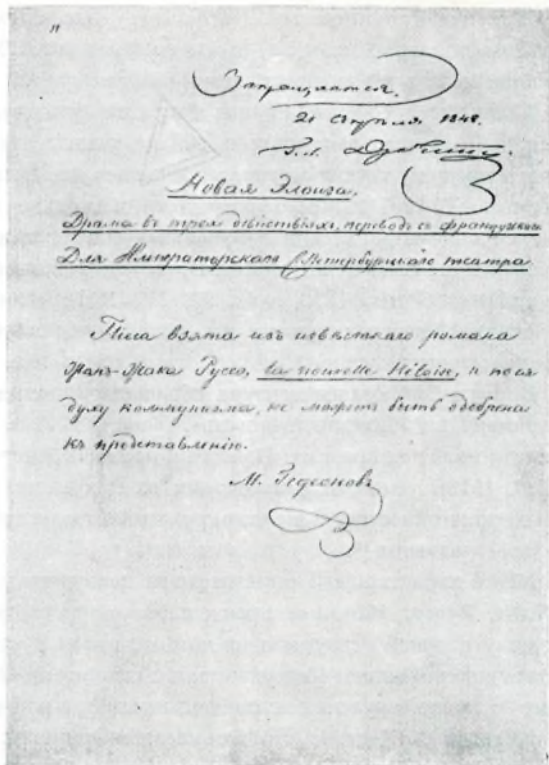 Запрещается.
21 Апреля 1848.
Г. Л. Дубельт
Новая Элоиза.
Драма въ трехъ действіяхъ, переводъ съ французскаго
Для Императорскаго С. Петербургскаго театра.
Піеса взята изъ известнаго романа
Жанъ-Жака Руссо, la nouvelle Héloise, и по
духу коммунизма, не можетъ быть одобрена
къ представленію.
М. Гедеоновъ